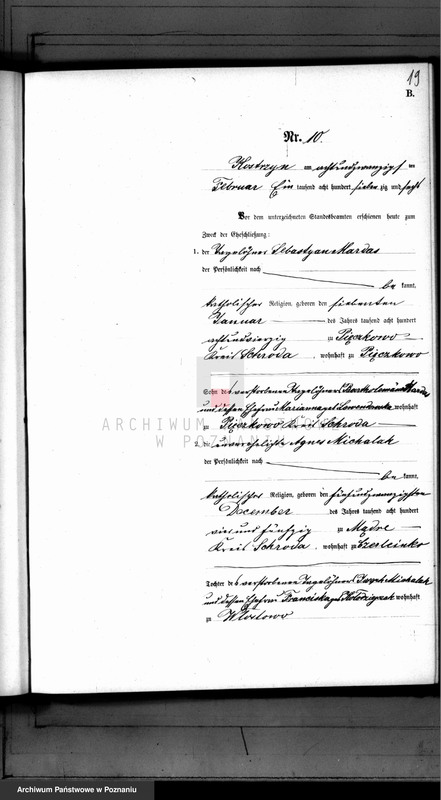 19
B.
Nr. 10.
Kostrzyn am achtundzwanzigsten
Februar Ein tausend acht hundert siebenzig und sechs
Vor dem unterzeichneten Standesbeamten erschienen heute zum
Zweck der Eheschließung:
1. der Tagelöhner Sebastyan Mardas
der Persönlichkeit nach
be kannt,
katholischer Religion, geboren den siebenten
Januar des Jahres tausend acht hundert
achtundvierzig zu Pięczkowo
Kreis Schroda, wohnhaft zu Pięczkowo
Sohn des verstorbenen Tagelöhners Bartholomäus Mardas
und dessen Ehefrau Marianna geb. wohnhaft
zu Pięczkowo Kreis Schroda
2. die unverehelichte Agnes Michalak
der Persönlichkeit nach
be kannt,
katholischer Religion, geboren den fünfundzwanzigsten
December des Jahres tausend acht hundert
vier und fünfzig zu Mądre
Kreis Schroda, wohnhaft zu Czerleinko
Tochter des verstorbenen Tagelöhners Michalak
und dessen Ehefrau Franciska geb. wohnhaft
zu Włostowo
ARCHIWUM PAŃSTWOWE
W POZNANIU
Archiwum Państwowe w Poznaniu